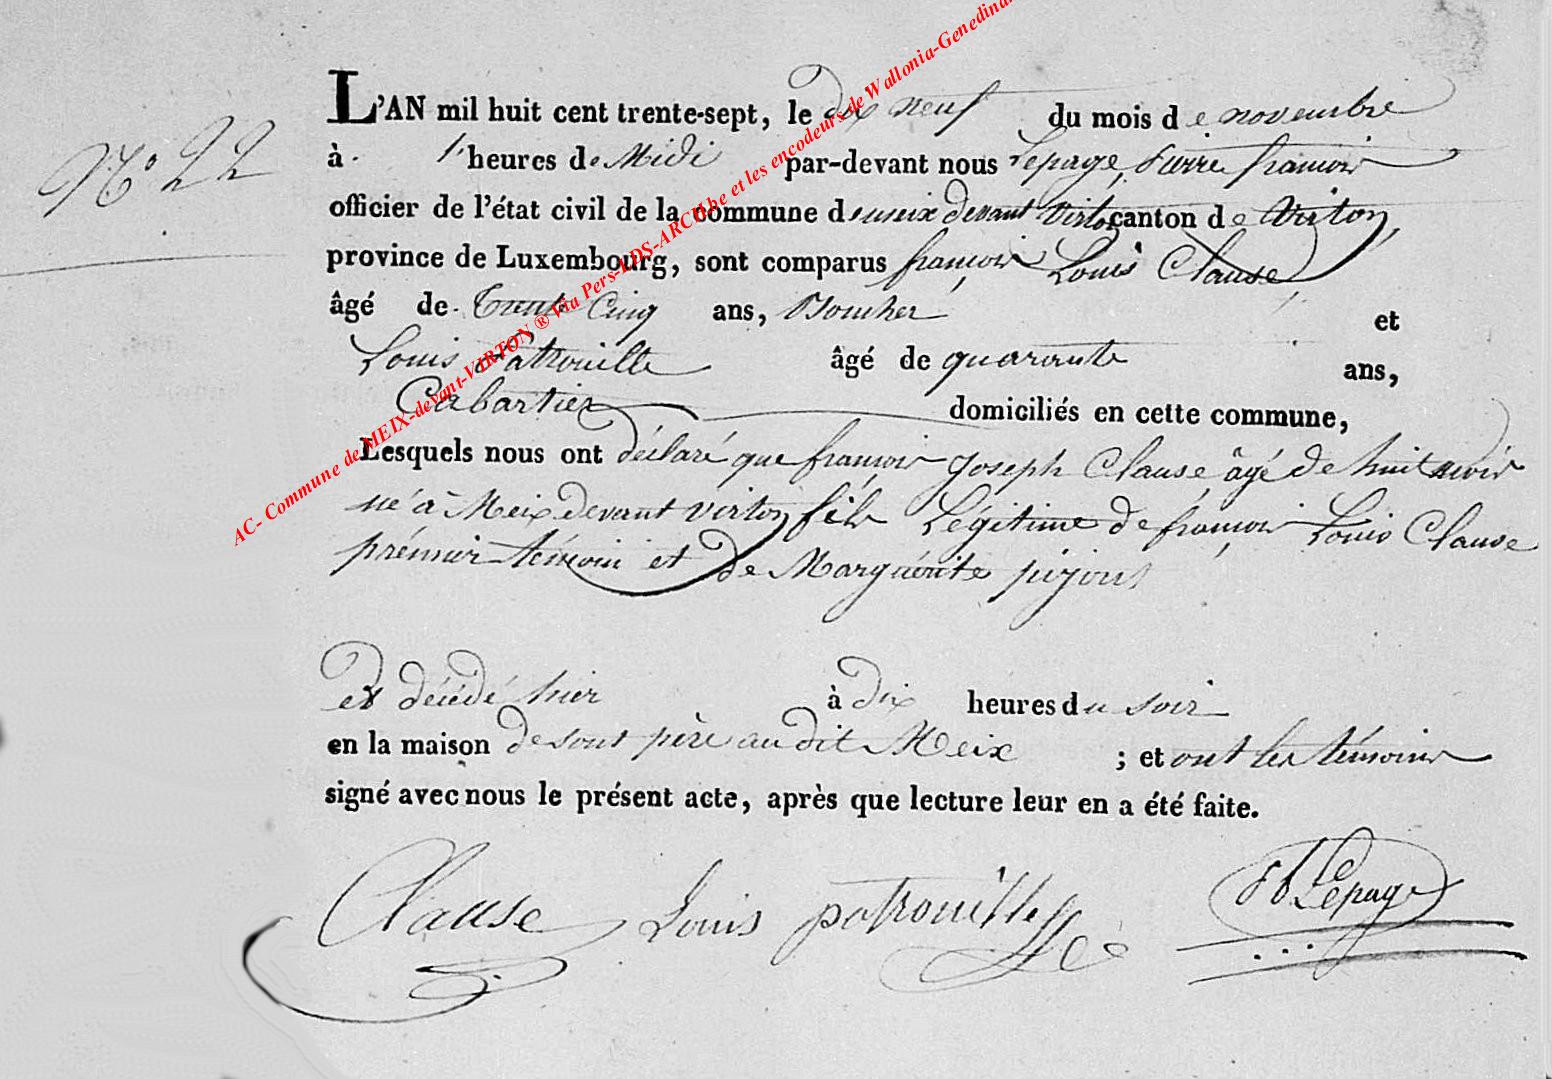 N.o 22
L'AN mil huit cent trente-sept, le dix neuf du mois de novembre
à 1' heures de Midi par-devant nous Lepage, Pierre françois
officier de l'état civil de la commune de meix devant Virton canton de Virton,
province de Luxembourg, sont comparus françois Louis Clause
âgé de trente Cinq ans, Boucher et
Louis Patrouille âgé de quarante ans,
Cabartier domiciliés en cette commune,
Lesquels nous ont déclaré que françois Joseph Clause âgé de huit mois
né à Meix devant virton fils Légitime de françois Louis Clause
prémier témoin et de Marguerite pijons
est décédé hier à dix heures du soir
en la maison de sont père au dit Meix ; et ont les témoins
signé avec nous le présent acte, après que lecture leur en a été faite.
Clause Louis patrouille Lepage
AC- Commune de MEIX-devant-VIRTON ® Via Pers-LDS-ARCH.be et les encodeurs de Wallonia-Genedina